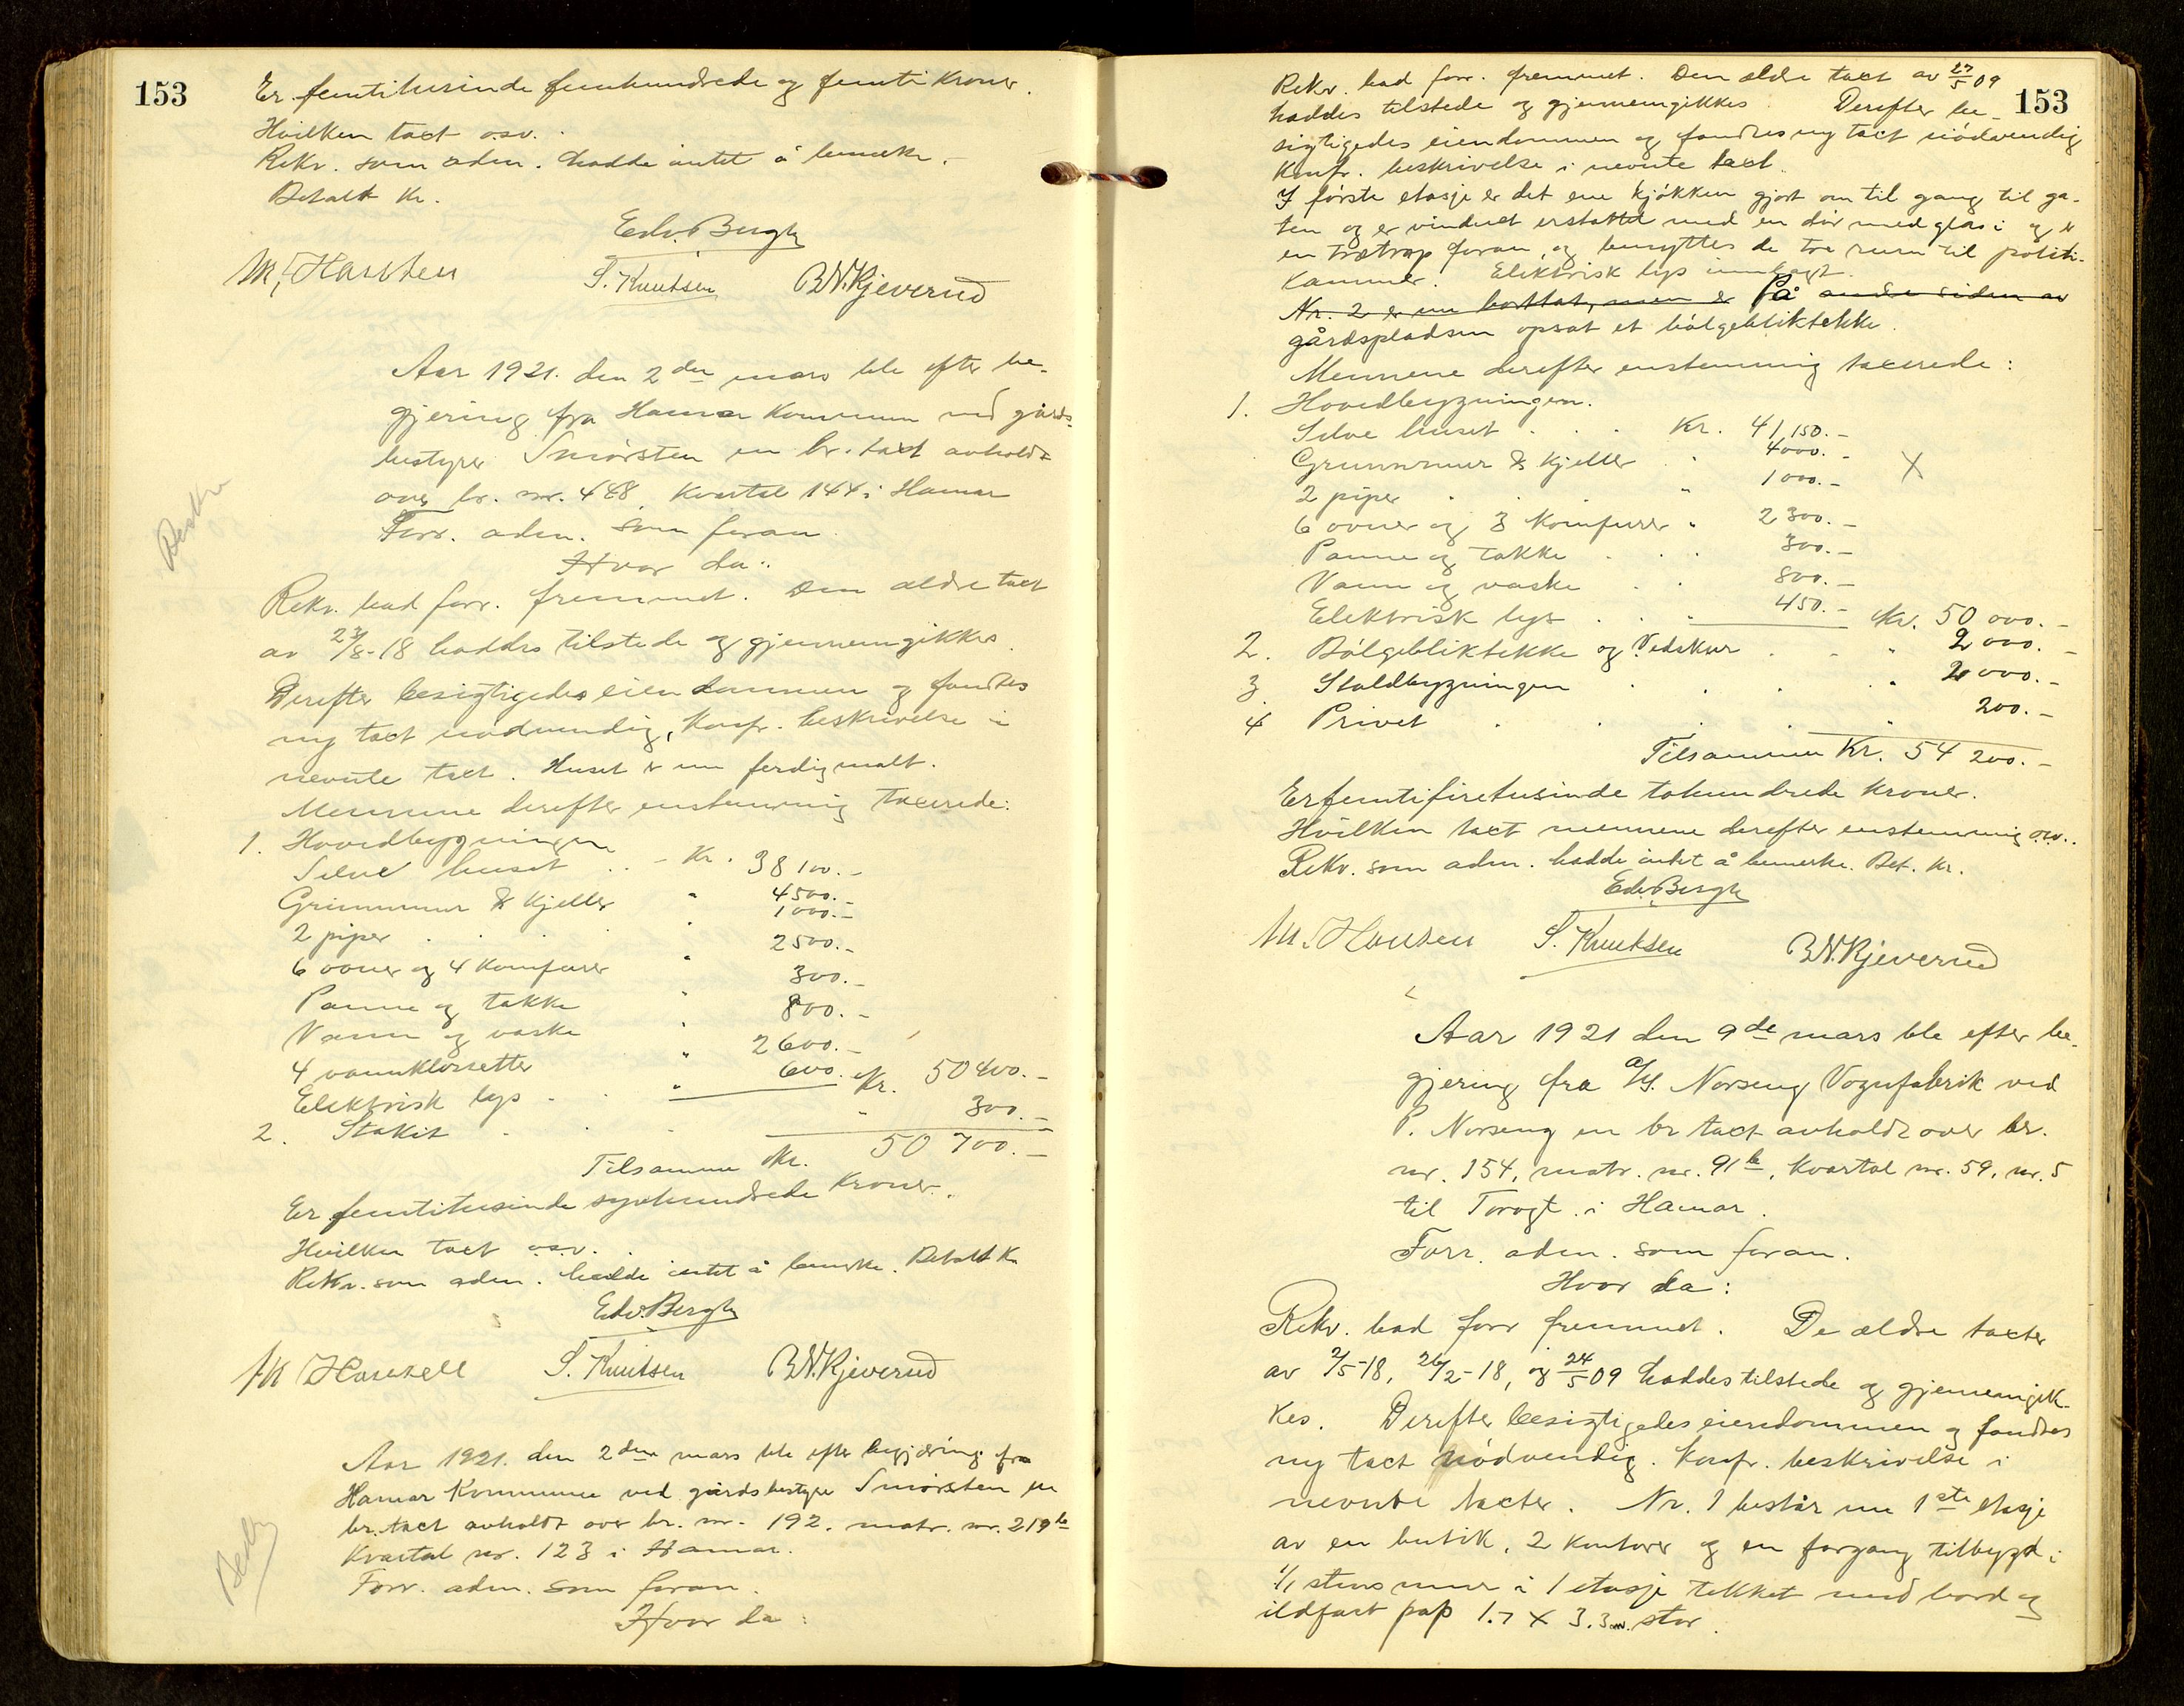 153
Er femtitusinde femhundrede og femti kroner.
Hvilken taxt osv.
Rekv. som adm. hadde intet å bemerke.
Betalt kr.
Edv. Bergh
M. Hansen S. Knutsen B.N. Kjeverud
Aar 1921. den 2den mars ble efter be-
gjering fra Hamar Kommune ved gårds-
bestyrer Smørsten en br. taxt avholdt
over br. nr. 448 kvartal 144 i Hamar
Forr. adm. som foran
Hvor da:
Rekv. bad forr. fremmet. Den ældre taxt
av 23/8-18 haddes tilstede og gjennemgikkes.
Derefter besigtigedes eiendommen og fandtes
ny taxt nødvendig, konfr. beskrivelse i
nevnte taxt. Huset er nu ferdig malt.
Mennene derefter enstemmig taxerede:
1. Hovedbygningen
Selve huset . . - Kr. 38 100.-
Grunnmur & kjeller " 4500.-
2 piper . . . " 1000.-
6 ovner og 4 komfurer " 2500.-
Panne og takke " 300.-
Vann og vaske " 800.-
4 vannklosetter " 2600.-
Elektrisk lys . . " 600. Kr. 50400.-
2. Stakit . . . " 300.-
Tilsammen Kr. 50 700.-
Er femtitusinde syvhundrede kroner.
Hvilken taxt osv.
Rekv. som adm. hadde intet å bemerke. Betalt Kr
Edv. Bergh
M. Hansen S. Knutsen B.N. Kjeverud
Aar 1921. den 2den mars ble efter begjæring fra
Hamar Kommune ved gårdsbestyrer Smørsten en
br. taxt avholdt over br. nr. 192. matr. nr. 219b
Kvartal nr. 123 i Hamar.
Forr. adm. som foran.
Hvor da:
153
Rekv. bad forr. fremmet. Den ældre taxt av 27/5 09
haddes tilstede og gjennemgikkes. Derefter be-
sigtigedes eiendommen og fandtes ny taxt nødvendig
Konfr. beskrivelse i nevnte taxt.
I første etasje er det ene kjøkken gjort om til gang til ga-
ten og er vinduet erstattet med en dør med glas i og er
en trætrap foran, og benyttes de tre rum til politi-
kammer. Elektrisk lys innlagt.
Nr. 2 er nu borttat, men er På andre siden av
gårdspladsen opsat et bølgebliktekke.
Mennene derefter enstemmig taxerede:
1. Hovedbygningen.
Selve huset . . . Kr. 41,150.-
Grunnmur & kjeller . " 4000.- X
2 piper . . . " 1000.-
6 ovner og 3 komfurer " 2300.-
Panne og takke . . . 300.-
Vann og vaske . . 800.-
Elektrisk lys . . . 450.- Kr. 50 000.-
2. Bølgebliktekke og Vedskur . - " 2 000.-
3. Staldbygningen . . . " 2 000.-
4 Privet . . . . " 200.-
Tilsammen Kr. 54 200.-
Er femtifiretusinde tohundrede kroner.
Hvilken taxt mennene derefter enstemmig osv..
Rekv. som adm. hadde intet å bemerke. Bet. kr.
Edv. Bergh
M. Hansen S. Knutsen B.N. Kjeverud
Aar 1921 den 9de mars ble efter be-
gjering fra A/S. Norseng Vognfabrik ved
P. Norseng en br taxt avholdt over br.
nr. 154, matr. nr. 91b, kvartal nr. 59, nr. 5
til Torvgt. i Hamar.
Forr. adm. som foran.
Hvor da:
Rekv. bad forr fremmet. De ældre taxter
av 2/5-18, 26/2-18, og 24/5 09 haddes tilstede og gjennemgik-
kes. Derefter besigtigedes eiendommen og fandtes
ny taxt nødvendig. Konfr. beskrivelse i
nevnte taxter. Nr. 1 består nu 1ste etasje
av en butik, 2 kontorer og en forgang tilbygd i
1/1 stens mur i 1 etasje tekket med bord og
ildfast pap 1.7 X 3.3 m. stor.